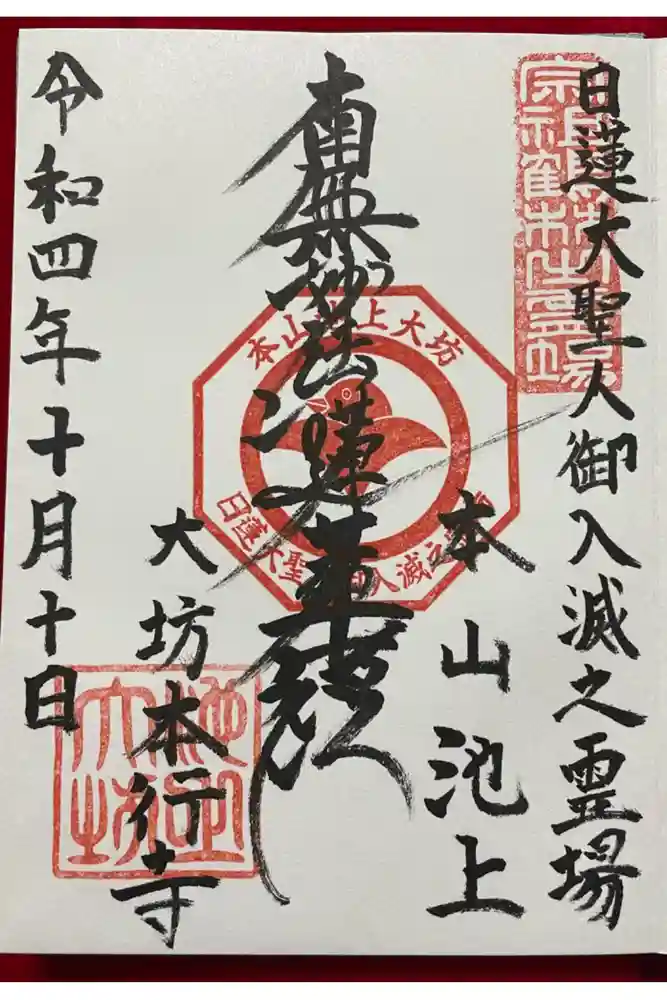 日蓮大聖人御入滅之霊場
本山池上
南無妙法蓮華経
大坊本行寺
令和四年十月十日
本山池上大坊
日蓮大聖人御入滅之
池上
大坊